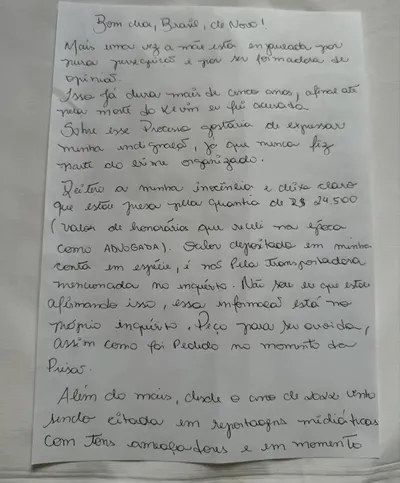 Bom dia, Brasil, de Novo!
Mais uma vez a mãe está enjaulada por
pura perseguição e por ser formadora de
opinião.
Isso já dura mais de cinco anos, afinal até
pela morte do Kevin eu fui acusada
Sobre esse Processo gostaria de expressar
minha indignação, já que nunca fiz
parte do crime organizado.
Reitero a minha inocência e deixo claro
que estou presa pela quantia de R$ 24.500
(valor de honorários que recebi na época
como ADVOGADA). Valor depositado em minha
conta em espécie, e não pela transportadora
mencionada no inquérito. Não sou eu que estou
afirmando isso, essa informação está no
próprio inquérito. Peço para ser ouvida,
assim como foi Pedido no momento da
Prisão.
Além do mais, desde o ano de venho
sendo citada em reportagens midiáticas
com tons ameaçadores e em momento